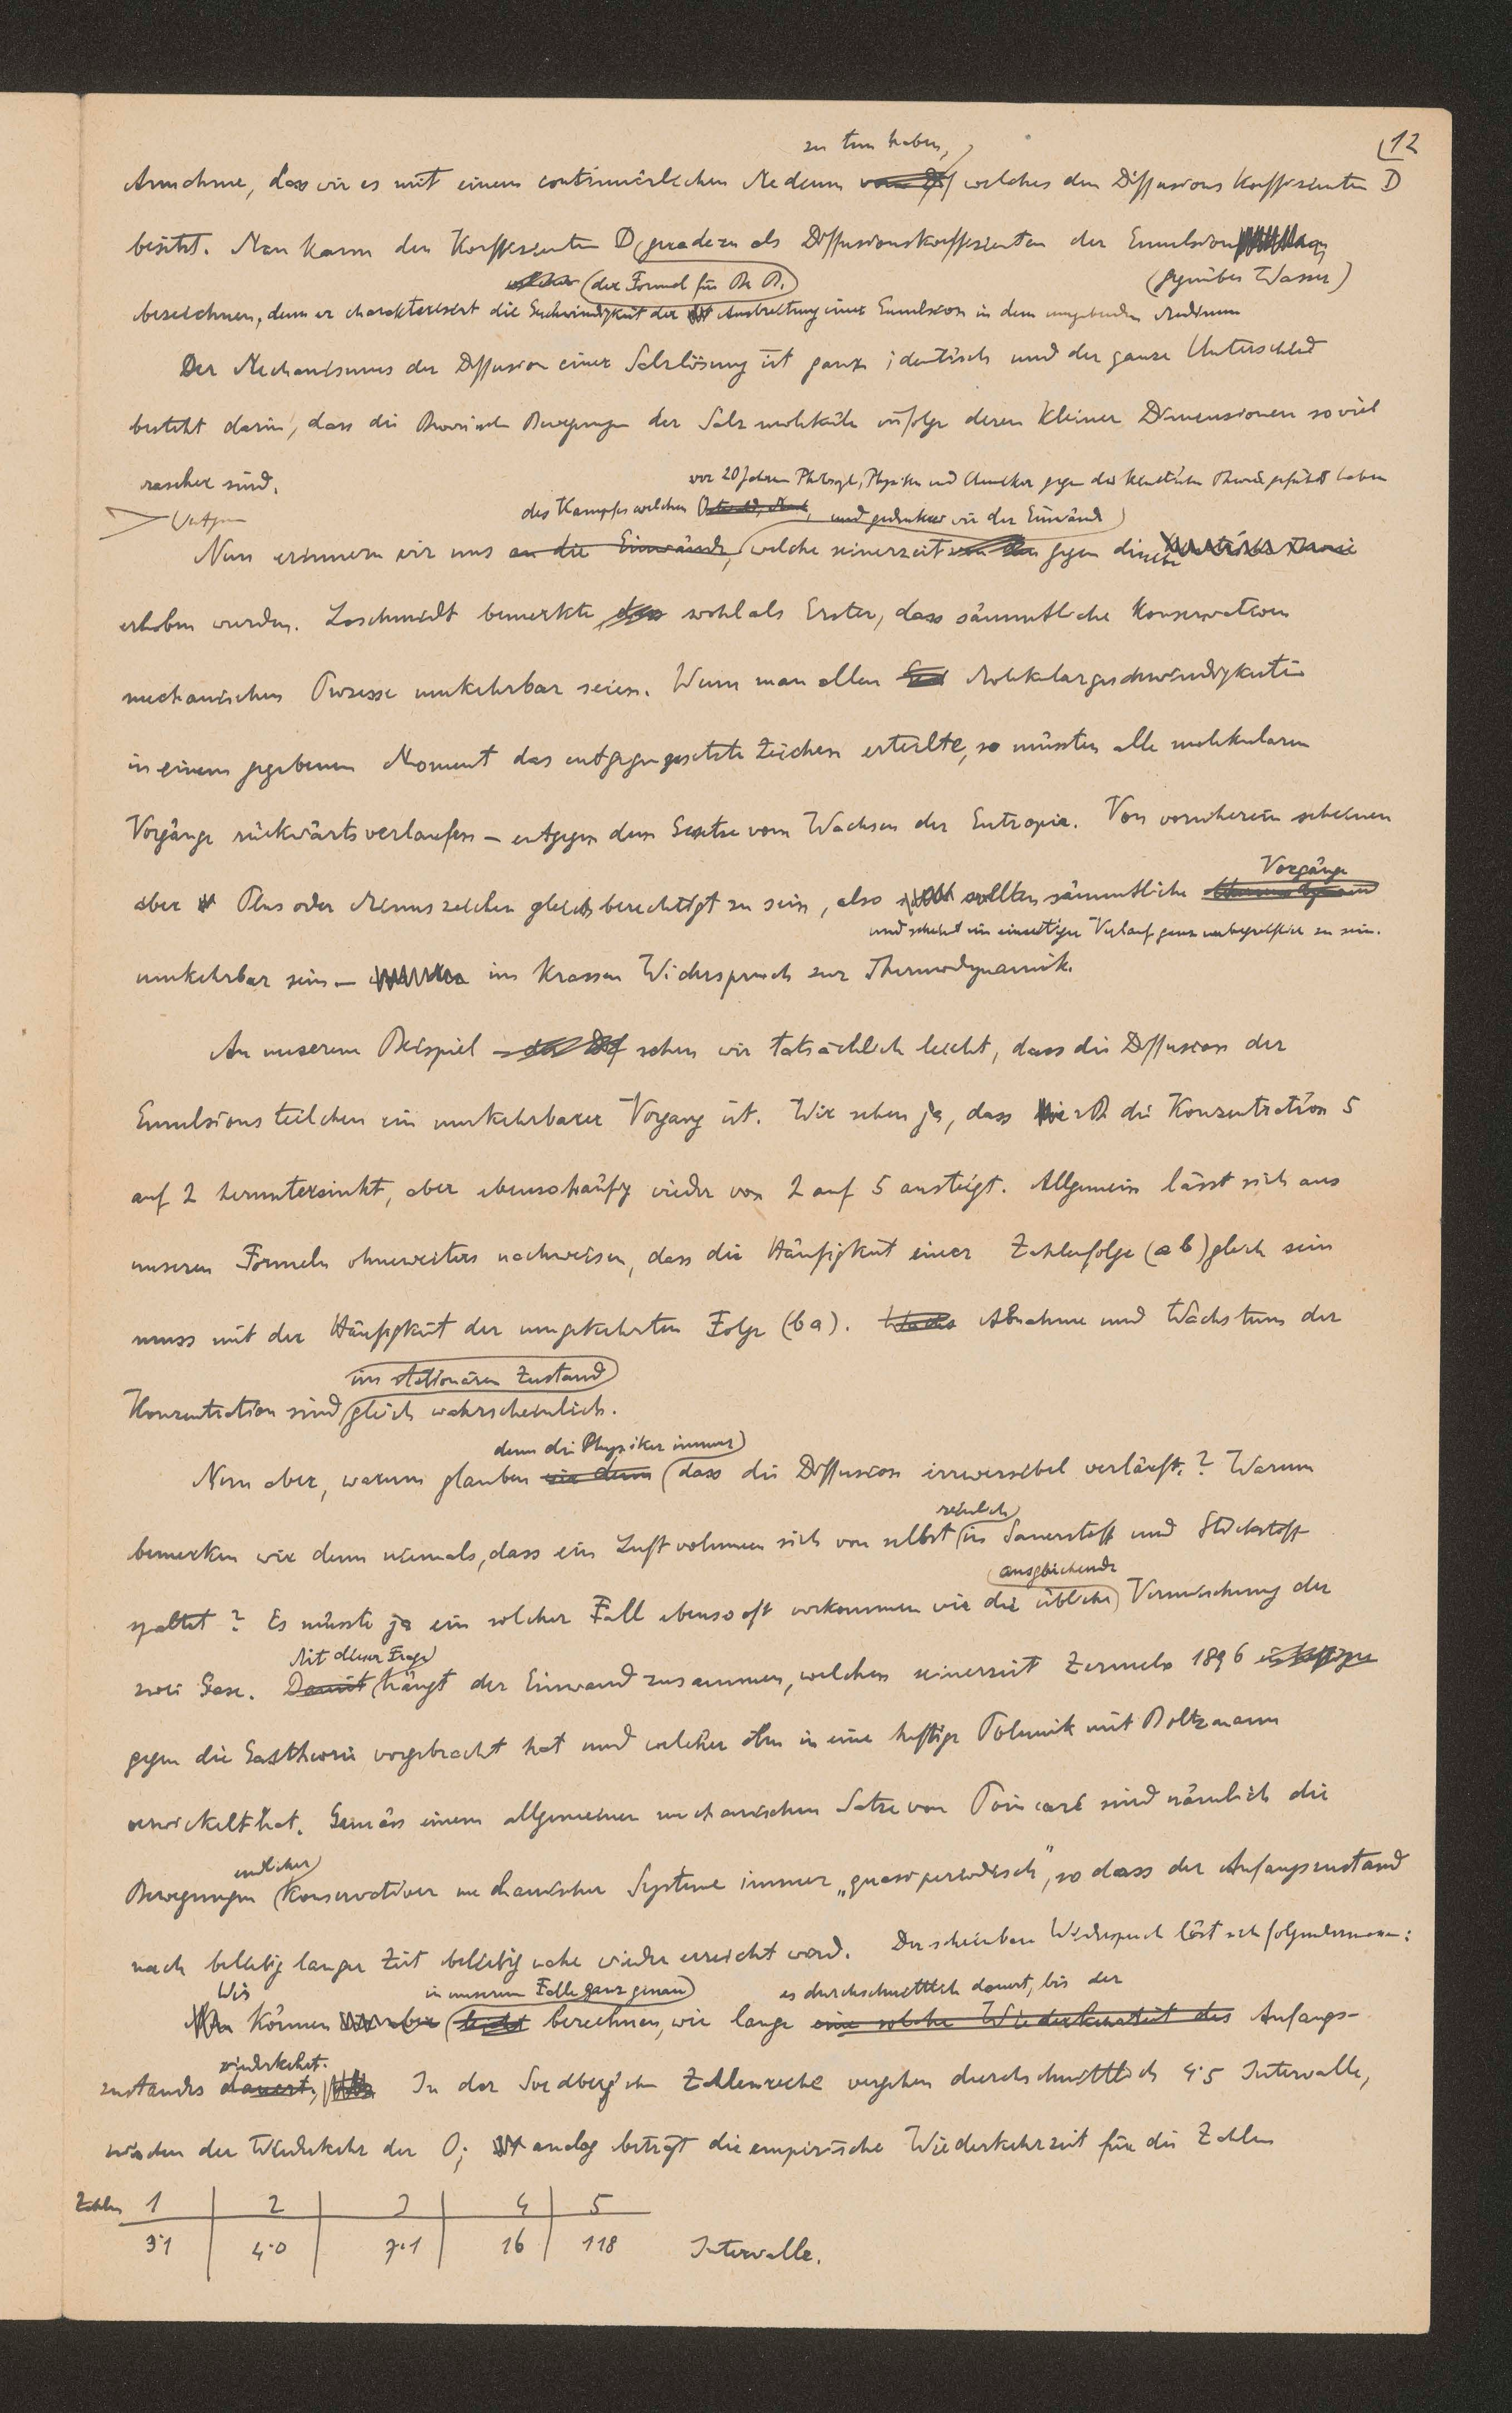 12
zu tun haben,
Annahme, dass wir es mit einem continuierlichen Medium welches den Diffusions Koeffizienten D
besitzt. Man kann den Koeffizienten D geradezu als Diffusionskoeffizienten der Emulsion
(der Formel für (gegenüber Wasser)
bezeichnen, denn er charakterisirt die Geschwindigkeit der Ausbreitung einer Emulsion in dem umgebenden Medium
Der Mechanismus der Diffusion einer Salzlösung ist ganz identisch und der ganze Unterschied
besteht darin, dass die Brownschen Bewegungen der Salzmoleküle infolge deren kleiner Dimensionen soviel
rascher sind.
vor 20 Jahren Philosoph, Physiker und Chemiker gegen die kinetische Theorie geführt haben
des Kampfes welchen Ostwald, Mach, und gedenken wir der Einwände
Nun erinnern wir uns an die Einwände, welche seinerzeit gegen dieselbe kinetische Theorie
erhoben wurden. Loschmidt bemerkte dass wohl als Erster, dass sämmtliche konservativen
mechanischen Prozesse umkehrbar seien. Wenn man allen Molekulargeschwindigkeiten
in einem gegebenen Moment das entgegengesetzte Zeichen erteilte, so müssten alle molekularen
Vorgänge rückwärts verlaufen — entgegen dem Gesetze vom Wachsen der Entropie. Von vornherein scheinen
Vorgänge
aber Plus oder Minuszeichen gleichberechtigt zu sein, also sollten sämmtliche
und scheint ein einseitiger Verlauf ganz unbegreiflich zu sein.
umkehrbar sein — im krassen Widerspruch zur Thermodynamik.
An unserem Beispiel sehen wir tatsächlich leicht, dass die Diffusion der
Emulsionsteilchen ein umkehrbarer Vorgang ist. Wir sehen ja, dass die Konzentration 5
auf 2 heruntersinkt, aber ebensohäufig wieder von 2 auf 5 ansteigt. Allgemein lässt sich aus
unseren Formeln ohneweiters nachweisen, dass die Häufigkeit einer Zahlenfolge (ab) gleich sein
muss mit der Häufigkeit der umgekehrten Folge (ba). Wachs Abnahme und Wachstum der
im stationären Zustand
Konzentration sind gleich wahrscheinlich.
denn die Physiker immer
Nun aber, warum glauben wir denn dass die Diffusion irreversibel verläuft? Warum
reinlich
bemerken wir denn niemals, dass ein Luftvolumen sich von selbst in Sauerstoff und Stickstoff
ausgleichende
spaltet? Es müsste ja ein solcher Fall ebensooft vorkommen wie die übliche Vermischung der
Mit dieser Frage
zwei Gase. Damit hängt der Einwand zusammen, welchen seinerzeit Zermelo 1896
gegen die Gastheorie vorgebracht hat und welcher ihn in eine heftige Polemik mit Boltzmann
verwickelt hat. Gemäss einem allgemeinen mechanischen Satze von Poincaré sind nämlich die
endlicher
Bewegungen konservativer mechanischer Systeme immer „quasiperiodisch", so dass der Anfangszustand
nach beliebig langer Zeit beliebig nahe wieder erreicht wird. Der scheinbare Widerspruch löst sich folgendermassen:
Wir in unserem Falle ganz genau es durchschnittlich dauert, bis der
können aber leicht berechnen, wie lange eine solche Wiederkehrzeit des Anfangs-
wiederkehrt.
zustandes dauert, In der Svedberg'schen Zahlenreihe vergehen durchschnittlich 4·5 Intervalle,
zwischen der Wiederkehr der 0; analog beträgt die empirische Wiederkehrzeit für die Zahlen
Zahlen 1 2 3 4 5
3·1 4·0 7·1 16 118 Intervalle.